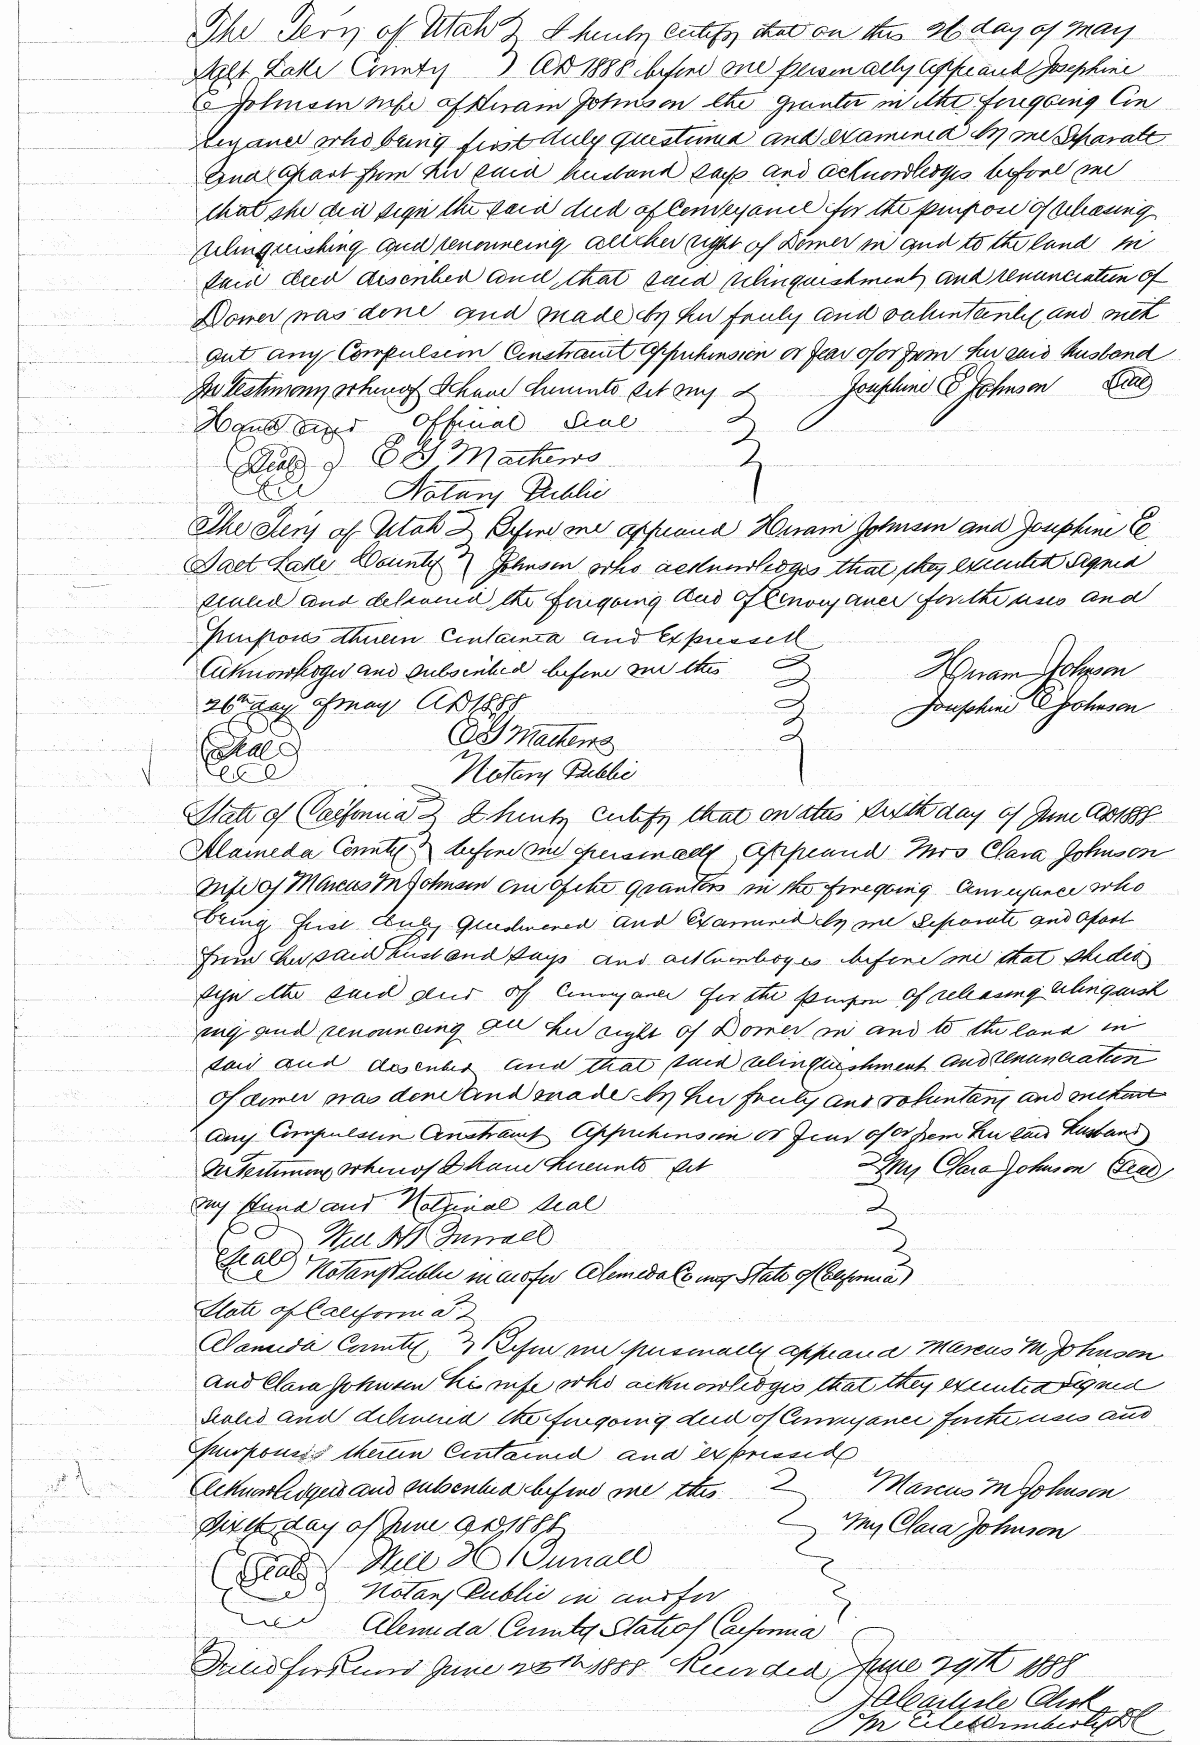 The Tery of Utah } I hereby certify that on this 26 day of May
Salt Lake County } AD 1888 before me personally appeard Josephine
E Johnson wife of Hiram Johnson the grantor in the foregoing Con
veyance who being first duly questioned and examined by me Separate
and apart from her said husband says and acknowledges before me
that she did sign the said deed of Conveyance for the purpose of releasing
relinquishing and renouncing all her right of Dower in and to the land in
said deed described and that said relinquishment and renunciation of
Dower was done and made by her freely and voluntarily and with
out any Compulsion Constraint Apprehension or fear of or from her said husband
In Testimony whereof I have hereunto set my } Josephine E Johnson Seal
Hand and Official Seal
Seal E G Mathews
Notary Public
The Tery of Utah } Before me appeard Hiram Johnson and Josephine E
Salt Lake County } Johnson who acknowledges that they executed signed
sealed and delivered the foregoing deed of Conveyance for the uses and
purposes therein contained and expressed
Acknowledged and subscribed before me this } Hiram Johnson
26th day of May AD 1888 } Josephine E Johnson
Seal E G Mathews
Notary Public
State of California } I hereby certify that on this sixth day of June AD 1888
Alameda County } before me personally appeard Mrs Clara Johnson
wife of Marcus M Johnson one of the grantors in the foregoing Conveyance who
being first duly questioned and Examined by me Separate and apart
from her said husband says and acknowledges before me that she did
sign the said deed of Conveyance for the purpose of releasing relinquish
ing and renouncing all her right of Dower in and to the land in
said and described and that said relinquishment and renunciation
of dower was done and made by her freely and voluntary and without
any Compulsion Constraint Apprehension or fear of or from her said husband
In Testimony whereof I have hereunto set } My Clara Johnson Seal
my Hand and Notarial seal
Seal Will H Burrall
Notary Public in and for Alameda County State of California
State of California }
Alameda County } Before me personally appeard Marcus M Johnson
and Clara Johnson his wife who acknowledges that they executed signed
sealed and delivered the foregoing deed of Conveyance for the uses and
purposes therein contained and expressed
Acknowledged and subscribed before me this } Marcus M Johnson
sixth day of June AD 1888 } My Clara Johnson
Seal Will H Burrall
Notary Public in and for
Alemeda County State of California
Filed for Record June 28th 1888 Recorded June 29th 1888
Carlisle Clerk